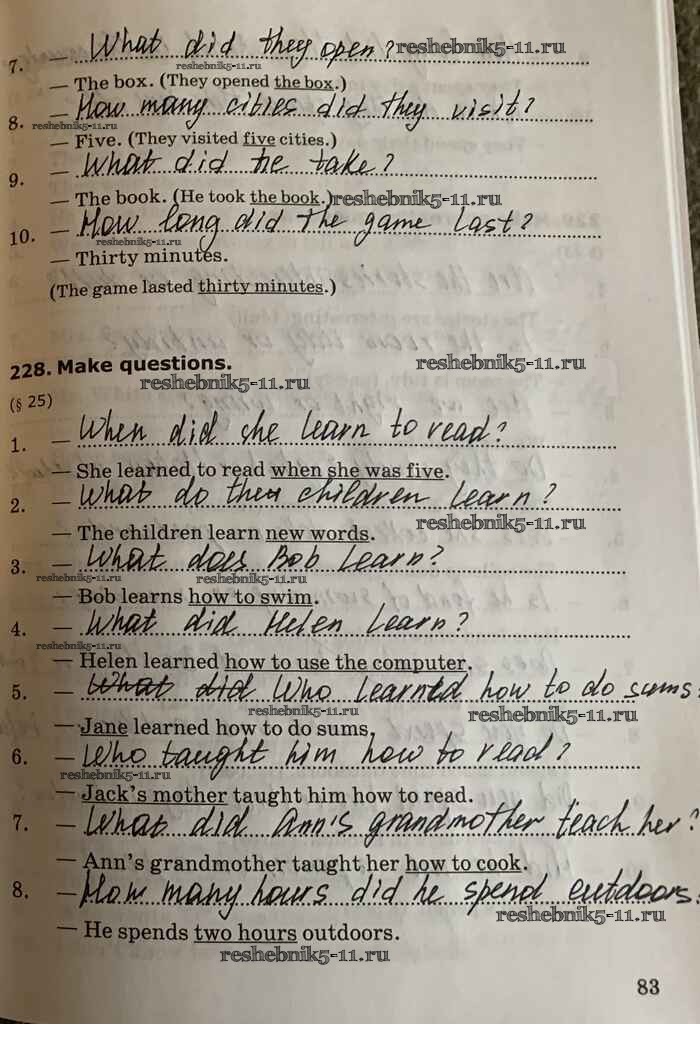 7. — What did they open? reshebnik5-11.ru
reshebnik5-11.ru
— The box. (They opened the box.)
8. — How many cities did they visit?
reshebnik5-11.ru
— Five. (They visited five cities.)
9. — What did he take?
— The book. (He took the book.) reshebnik5-11.ru
10. — How long did the game last?
reshebnik5-11.ru
— Thirty minutes.
(The game lasted thirty minutes.)
228. Make questions. reshebnik5-11.ru
reshebnik5-11.ru
(§ 25)
1. — When did she learn to read?
— She learned to read when she was five.
2. — What do then children learn?
— The children learn new words. reshebnik5-11.ru
3. — What does Bob learn?
reshebnik5-11.ru reshebnik5-11.ru
— Bob learns how to swim.
4. — What did Helen learn?
reshebnik5-11.ru
— Helen learned how to use the computer.
5. — What did Who learned how to do sums
reshebnik5-11.ru reshebnik5-11.ru
— Jane learned how to do sums.
6. — Who taught him how to read?
reshebnik5-11.ru
— Jack's mother taught him how to read.
7. — What did Ann's grandmother teach her?
— Ann's grandmother taught her how to cook.
8. — How many hours did he spend outdoors
reshebnik5-11.ru
— He spends two hours outdoors.
reshebnik5-11.ru
83